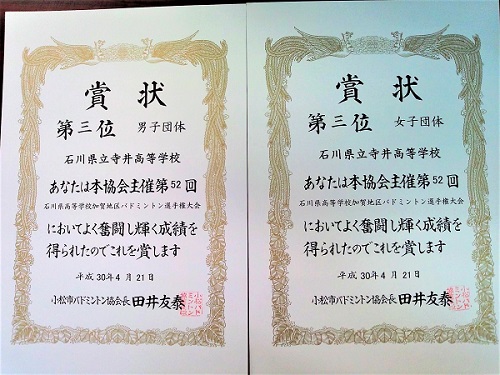 賞状
第三位 男子団体
石川県立寺井高等学校
あなたは本協会主催第52回
石川県高等学校加賀地区バドミントン選手権大会
においてよく奮闘し輝く成績を
得られたのでこれを賞します
平成30年4月21日
小松市バドミントン協会長 田井友泰
賞状
第三位 女子団体
石川県立寺井高等学校
あなたは本協会主催第52回
石川県高等学校加賀地区バドミントン選手権大会
においてよく奮闘し輝く成績を
得られたのでこれを賞します
平成30年4月21日
小松市バドミントン協会長 田井友泰